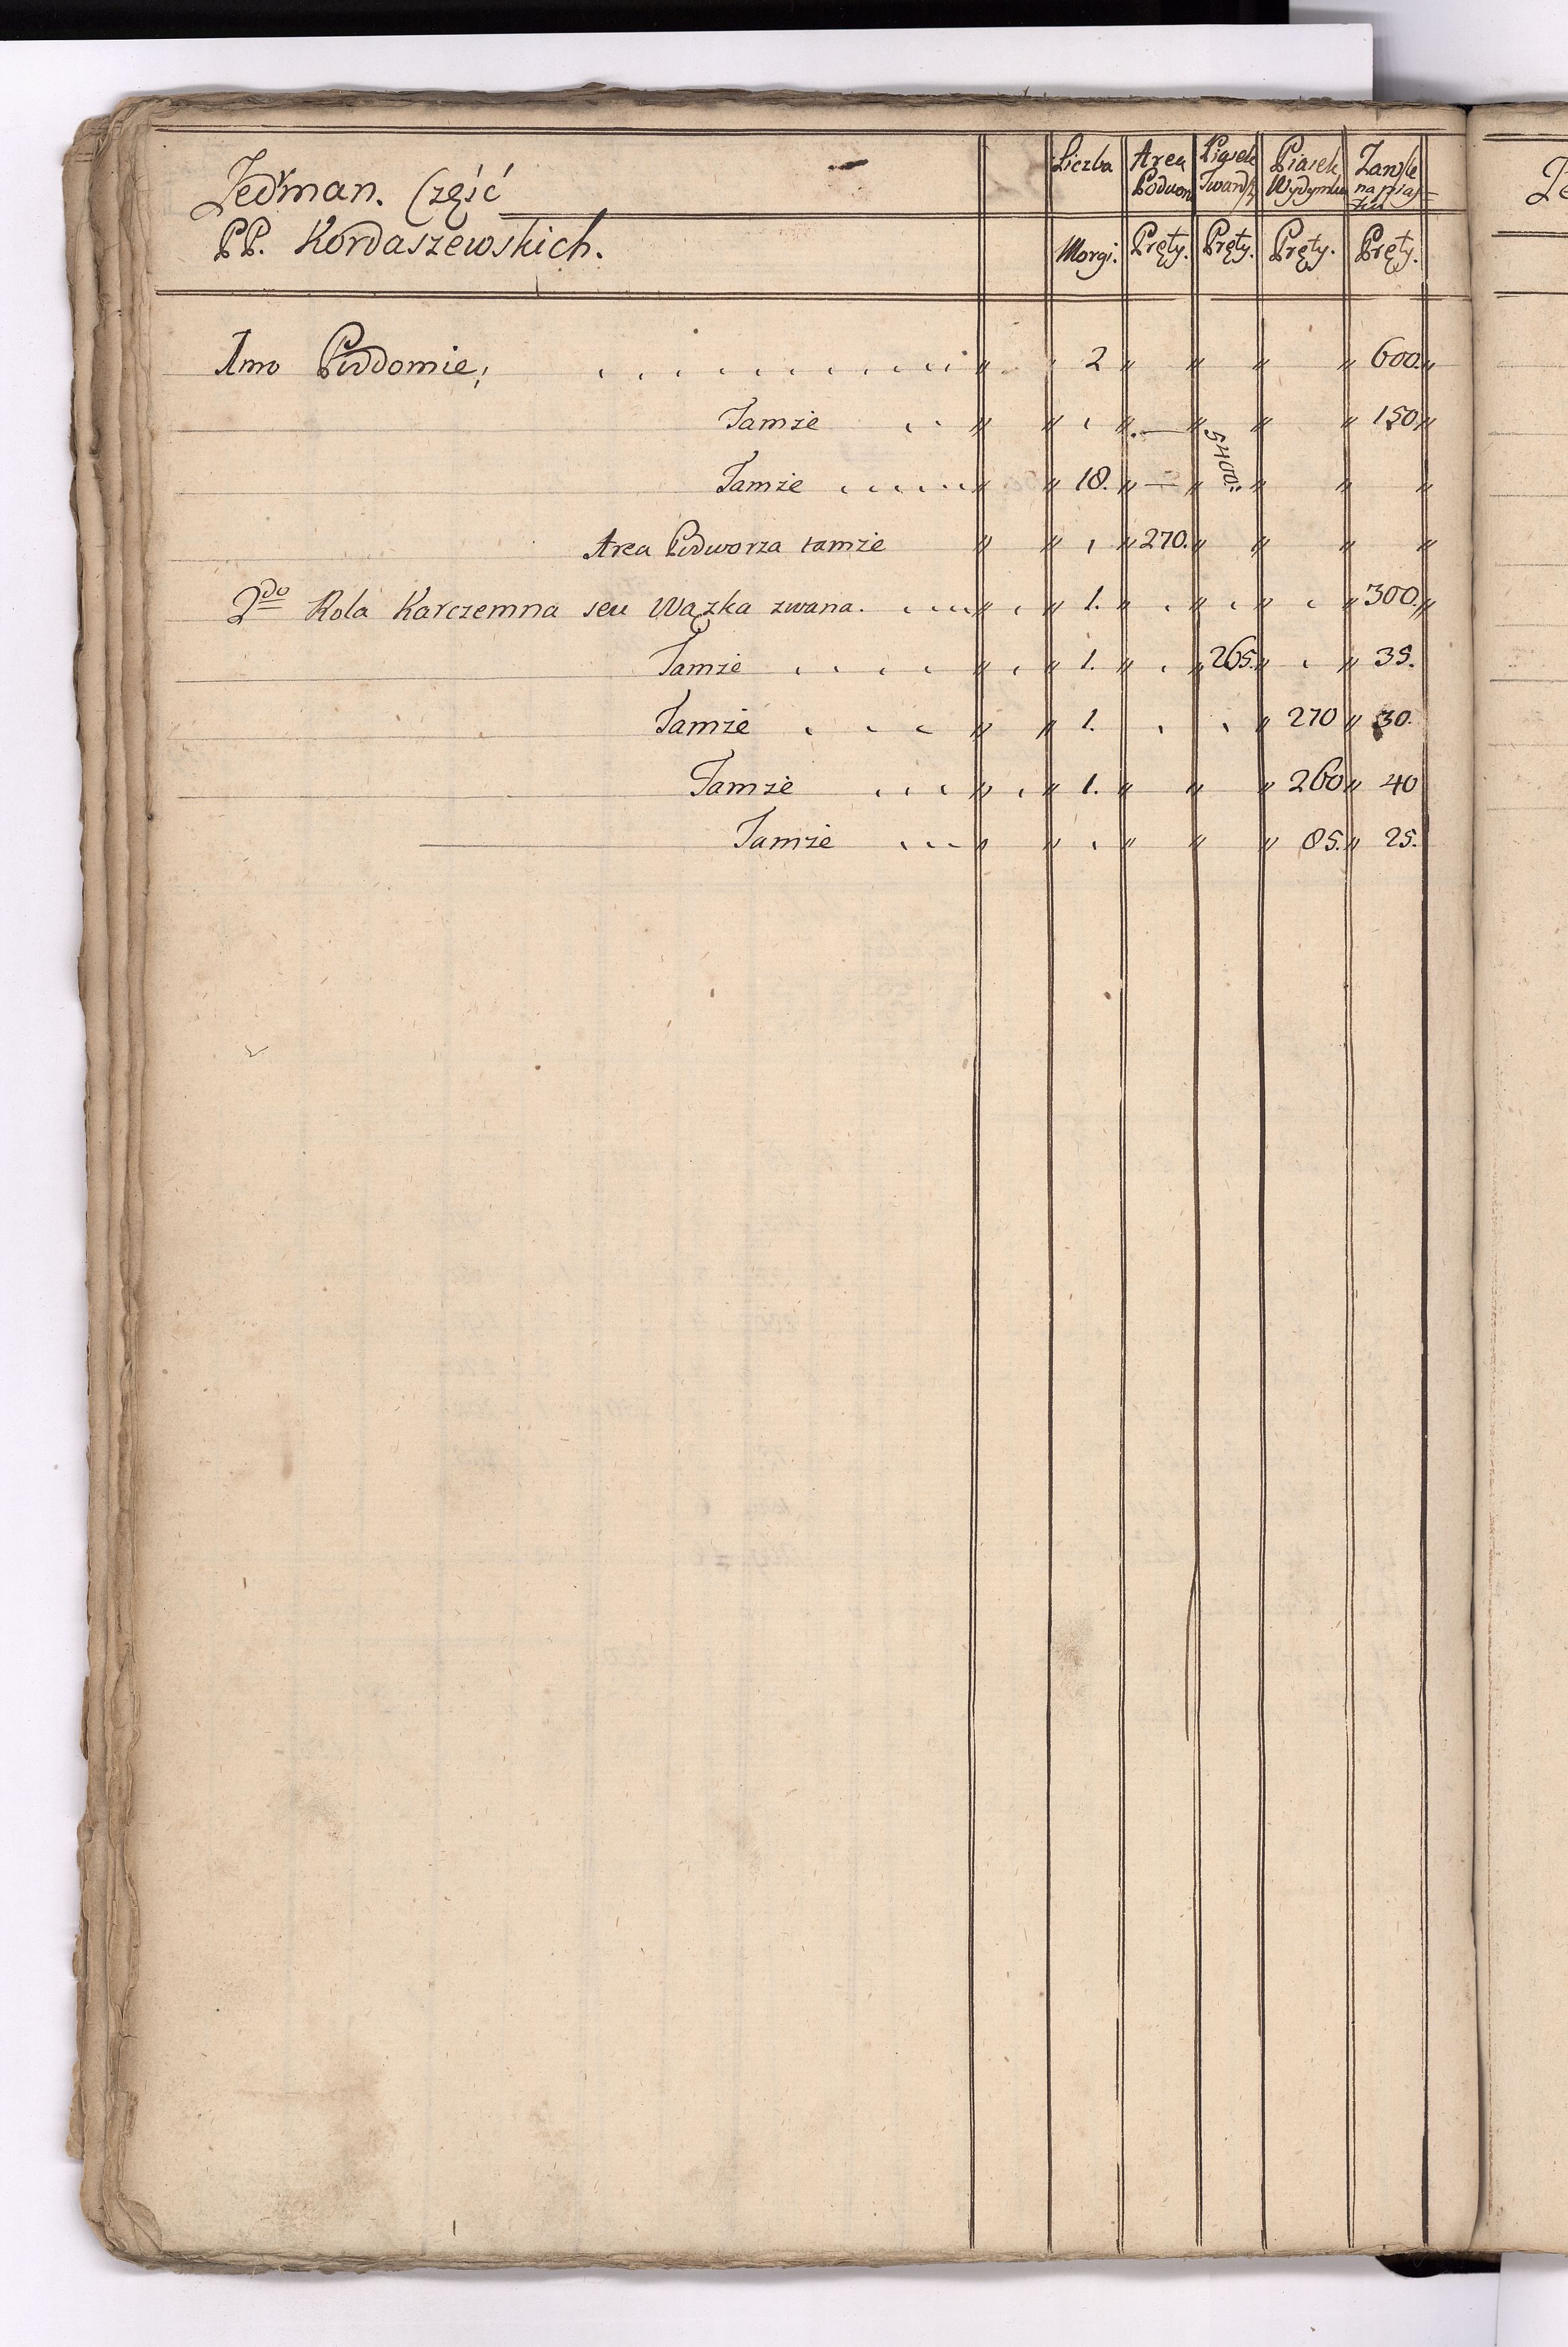 Zedman. Część
PP. Kordaszewskich.
Liczba Area Podwor Piasek Twardy Piasek Wydymka
na pias=
Morgi. Pręty. Pręty. Pręty. Pręty.
1mo Podomie; 2 600.
Tamże 150.
Tamże 18. 5400.
Area Podworza tamże 270.
2do Rola Karczemna seu Wązka zwana. 1. 300.
Tamże 1. 265. 35.
Tamże 1. 270 30.
Tamże 1. 260 40
Tamże 85. 25.